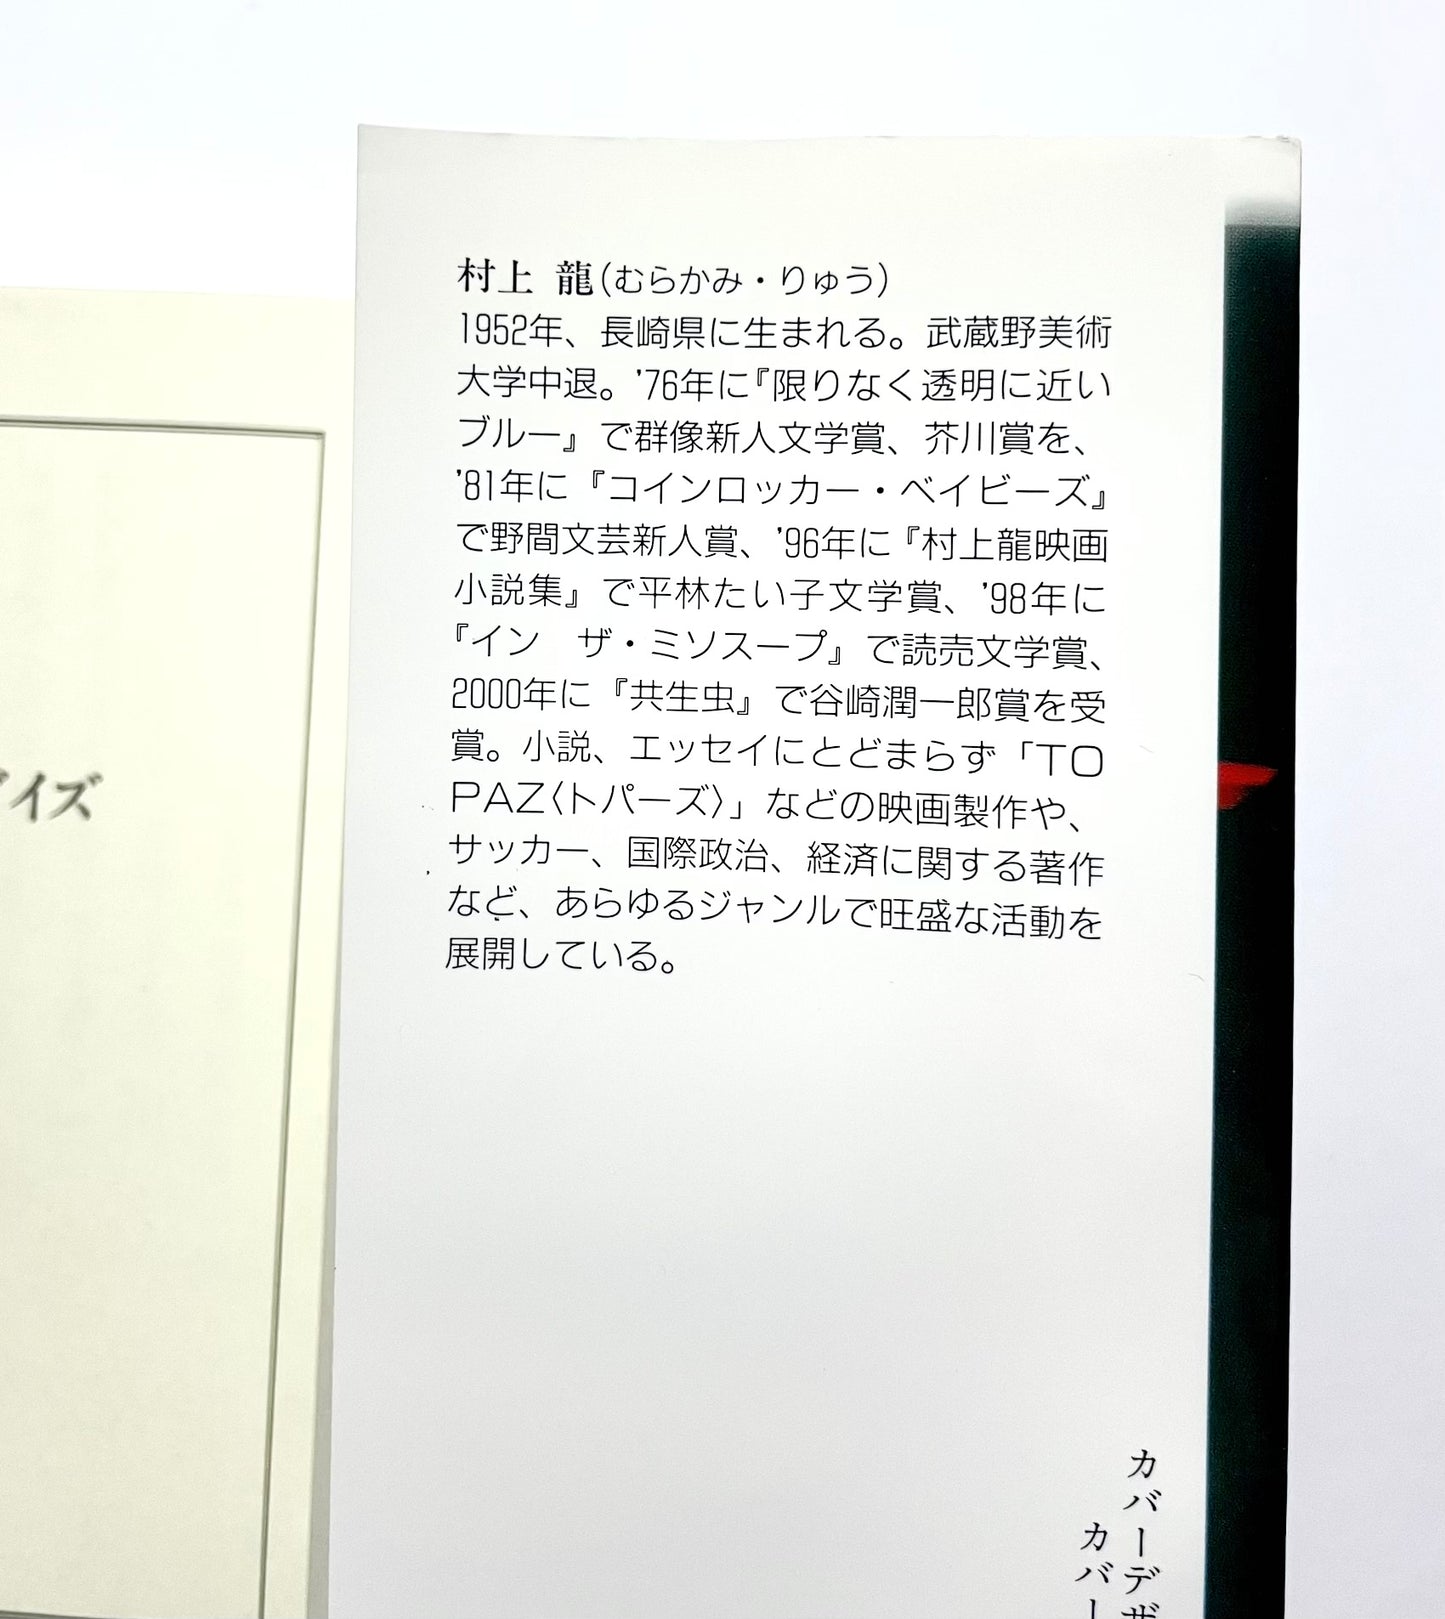 村上 龍(むらかみ・りゅう)
1952年、長崎県に生まれる。武蔵野美術
大学中退。'76年に『限りなく透明に近い
ブルー』で群像新人文学賞、芥川賞を、
'81年に『コインロッカー・ベイビーズ』
で野間文芸新人賞、'96年に『村上龍映画
小説集』で平林たい子文学賞、'98年に
『イン ザ・ミソスープ』で読売文学賞、
2000年に『共生虫』で谷崎潤一郎賞を受
賞。小説、エッセイにとどまらず「TO
PAZ〈トパーズ〉」などの映画製作や、
サッカー、国際政治、経済に関する著作
など、あらゆるジャンルで旺盛な活動を
展開している。
カバーデザ
カバー
イズ